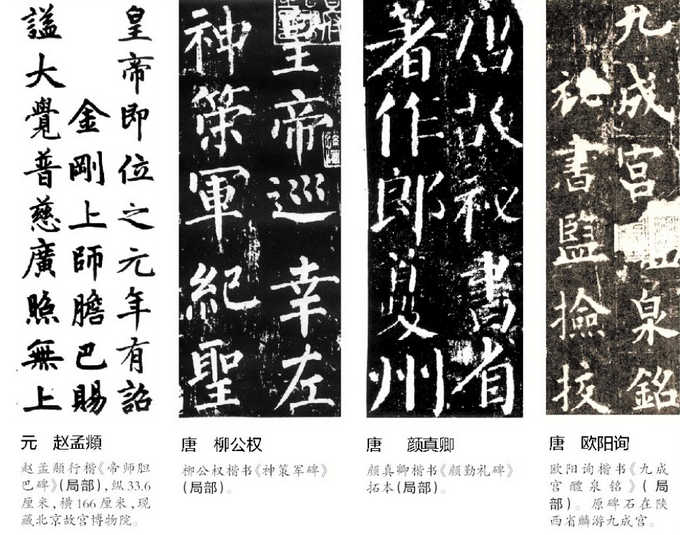 皇帝即位之元年有詔
金剛上師膽巴賜
謚大覺普慈廣照無上
皇帝巡幸左
神策軍紀聖
唐故祕書省
著作郎夔州
九成宮醴泉銘
祕書監撿挍
元 赵孟頫
赵孟頫行楷《帝师胆
巴碑》(局部),纵33.6
厘米,横166厘米,现
藏北京故宫博物院。
唐 柳公权
柳公权楷书《神策军碑》
(局部)。
唐 颜真卿
颜真卿楷书《颜勤礼碑》
拓本(局部)。
唐 欧阳询
欧阳询楷书《九成
宫醴泉铭》(局
部)。原碑石在陕
西省麟游九成宫。